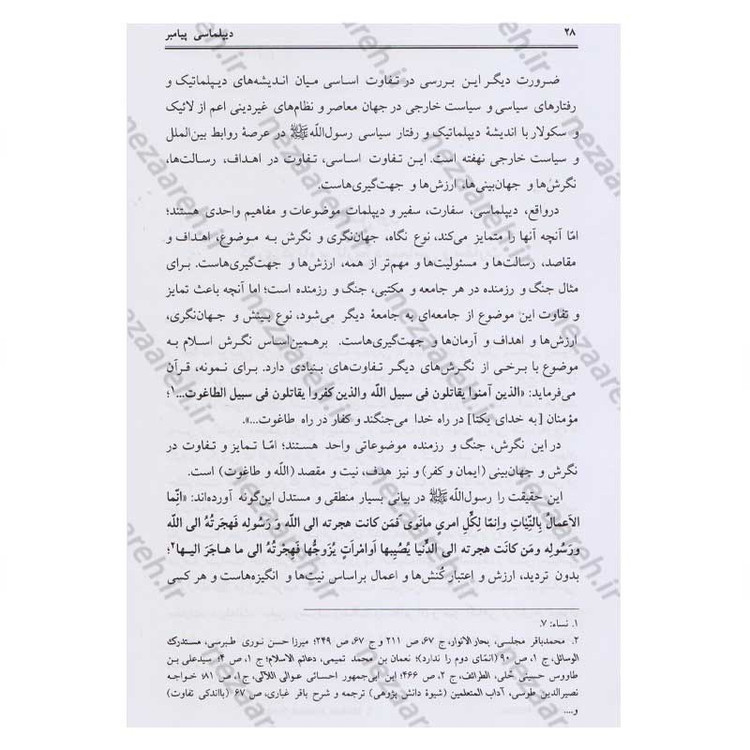 ۲۸ دیپلماسی پیامبر
ضرورت دیگر این بررسی در تفاوت اساسی میان اندیشه‌های دیپلماتیک و
رفتارهای سیاسی و سیاست خارجی در جهان معاصر و نظام‌های غیردینی اعم از لائیک
و سکولار با اندیشهٔ دیپلماتیک و رفتار سیاسی رسول‌اللّه ﷺ در عرصهٔ روابط بین‌الملل
و سیاست خارجی نهفته است. این تفاوت اساسی، تفاوت در اهداف، رسالت‌ها،
نگرش‌ها و جهان‌بینی‌ها، ارزش‌ها و جهت‌گیری‌هاست.
درواقع، دیپلماسی، سفارت، سفیر و دیپلمات موضوعات و مفاهیم واحدی هستند؛
امّا آنچه آنها را متمایز می‌کند، نوع نگاه، جهان‌نگری و نگرش به موضوع، اهداف و
مقاصد، رسالت‌ها و مسئولیت‌ها و مهم‌تر از همه، ارزش‌ها و جهت‌گیری‌هاست. برای
مثال جنگ و رزمنده در هر جامعه و مکتبی، جنگ و رزمنده است؛ اما آنچه باعث تمایز
و تفاوت این موضوع از جامعه‌ای به جامعهٔ دیگر می‌شود، نوع بینش و جهان‌نگری،
ارزش‌ها و اهداف و آرمان‌ها و جهت‌گیری‌هاست. برهمین‌اساس نگرش اسلام به
موضوع با برخی از نگرش‌های دیگر تفاوت‌های بنیادی دارد. برای نمونه، قرآن
می‌فرماید: «الذین آمنوا یقاتلون فی سبیل اللّه والذین کفروا یقاتلون فی سبیل الطاغوت...۱؛
مؤمنان [به خدای یکتا] در راه خدا می‌جنگند و کفار در راه طاغوت...».
در این نگرش، جنگ و رزمنده موضوعاتی واحد هستند؛ امّا تمایز و تفاوت در
نگرش و جهان‌بینی (ایمان و کفر) و نیز هدف، نیت و مقصد (اللّه و طاغوت) است.
این حقیقت را رسول‌اللّه ﷺ در بیانی بسیار منطقی و مستدل این‌گونه آورده‌اند: «انّما
الاعمالُ بالنّیّات وانمّا لِکُلِّ امریٍ مانَوی فَمَن کانت هجرته الی اللّه وَ رَسُولِه فَهجرَتُهُ الی اللّه
ورَسُولِه ومَن کانَت هجرته الی الدُّنیا یُصُیبها اَوامْراَتٍ یُزَوِجُّها فَهِجْرتُهُ الی ما هاجَرَ الیها۲؛
بدون تردید، ارزش و اعتبار کُنش‌ها و اعمال براساس نیت‌ها و انگیزه‌هاست و هر کسی
۱. نساء: ۷.
۲. محمدباقر مجلسی، بحارالانوار، ج ۶۷، ص ۲۱۱ و ج ۶۷، ص ۲۴۹؛ میرزا حسن نوری طبرسی، مستدرک
الوسائل، ج ۱، ص ۹۰ (انمّای دوم را ندارد)؛ نعمان بن محمد تمیمی، دعائم الاسلام؛ ج ۱، ص ۴؛ سیدعلی بن
طاووس حسینی حلی، الطرائف، ج ۲، ص ۴۶۶؛ ابن ابی‌جمهور احسائی عوالی اللآلی، ج ۱، ص ۸۱؛ خواجه
نصیرالدین طوسی، آداب المتعلمین (شیوهٔ دانش پژوهی) ترجمه و شرح باقر غباری، ص ۶۷ (بااندکی تفاوت)
و....
nezaareh.ir